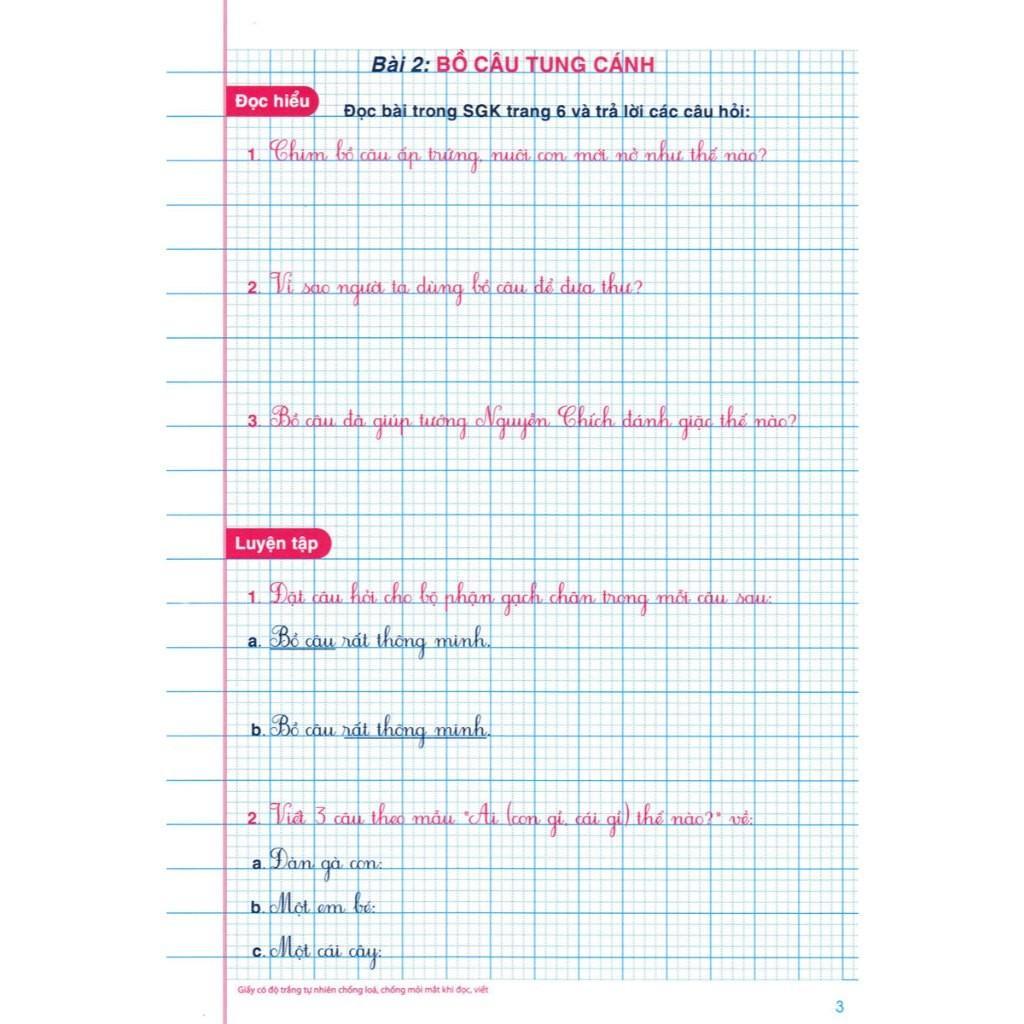 Bài 2: BỒ CÂU TUNG CÁNH
Đọc hiểu
Đọc bài trong SGK trang 6 và trả lời các câu hỏi:
1. Chim bồ câu ấp trứng, nuôi con mới nở như thế nào?
2. Vì sao người ta dùng bồ câu để đưa thư?
3. Bồ câu đã giúp tướng Nguyễn Chích đánh giặc thế nào?
Luyện tập
1. Đặt câu hỏi cho bộ phận gạch chân trong mỗi câu sau:
a. Bồ câu rất thông minh.
b. Bồ câu rất thông minh.
2. Viết 3 câu theo mẫu "Ai (con gì, cái gì) thế nào?" về:
a. Đàn gà con:
b. Một em bé:
c. Một cái cây:
Giấy có độ trắng tự nhiên chống loá, chống mỏi mắt khi đọc, viết
3